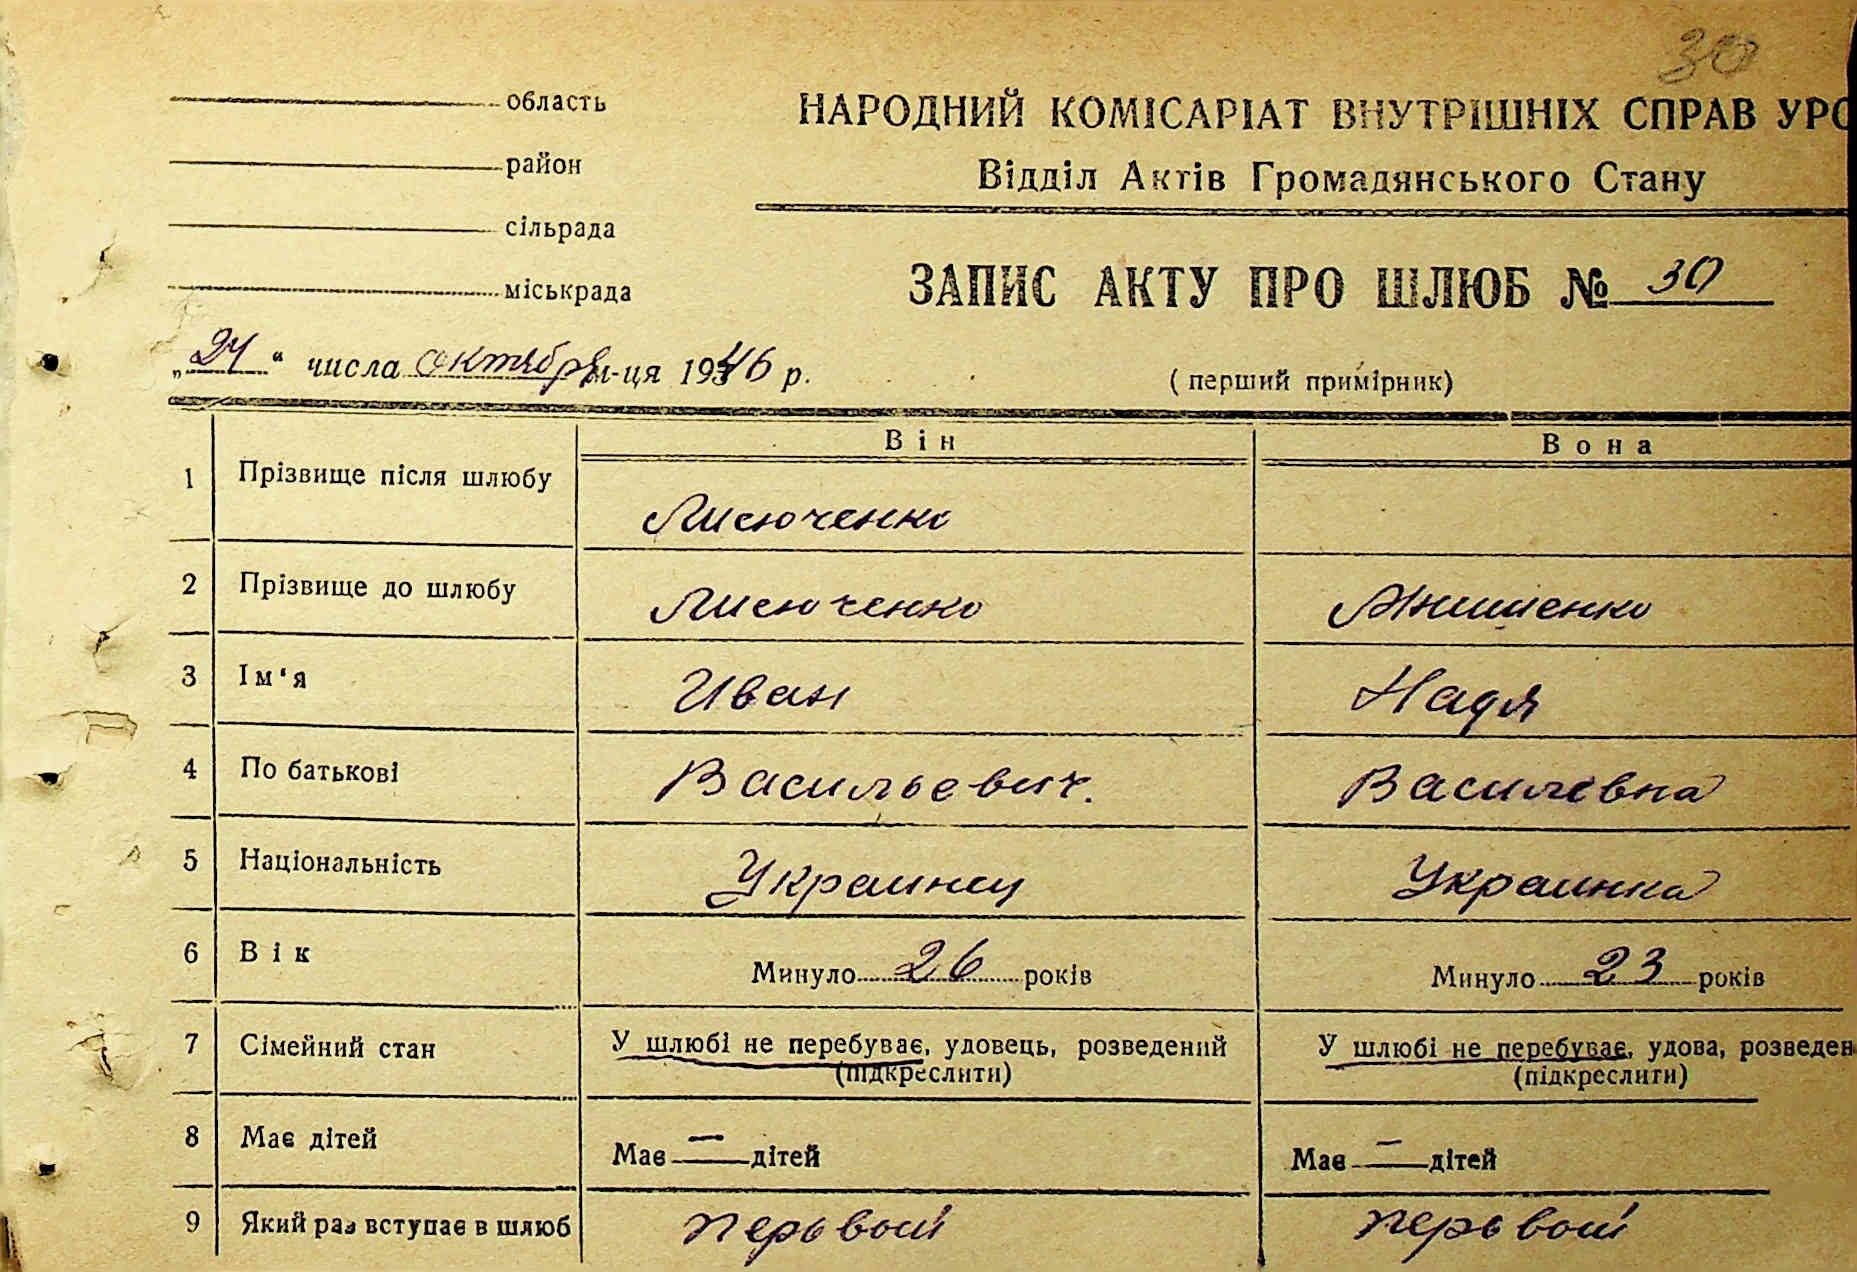 30
область
район
сільрада
міськрада
НАРОДНИЙ КОМІСАРІАТ ВНУТРІШНІХ СПРАВ УРС
Відділ Актів Громадянського Стану
ЗАПИС АКТУ ПРО ШЛЮБ № 30
„24“ числа октября м-ця 1946 р.
(перший примірник)
Він Вона
1 Прізвище після шлюбу Лисюченко
2 Прізвище до шлюбу Лисюченко
3 Ім'я Иван Надя
4 По батькові Васильевич. Василевна
5 Національність Украинец Украинка
6 Вік Минуло 26 років Минуло 23 років
7 Сімейний стан У шлюбі не перебуває, удовець, розведений У шлюбі не перебуває, удова, розведен
(підкреслити) (підкреслити)
8 Має дітей Має — дітей Має — дітей
9 Який раз вступає в шлюб первой первой